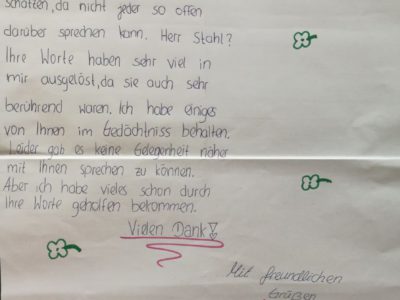 schätzen, da nicht jeder so offen
darüber sprechen kann. Herr Stahl?
Ihre Worte haben sehr viel in
mir ausgelöst, da sie auch sehr
berührend waren. Ich habe einiges
von Ihnen im Gedächtniss behalten.
Leider gab es keine Gelegenheit näher
mit Ihnen sprechen zu können.
Aber ich habe vieles schon durch
Ihre Worte geholfen bekommen.
Vielen Dank!
Mit freundlichen
Grüßen